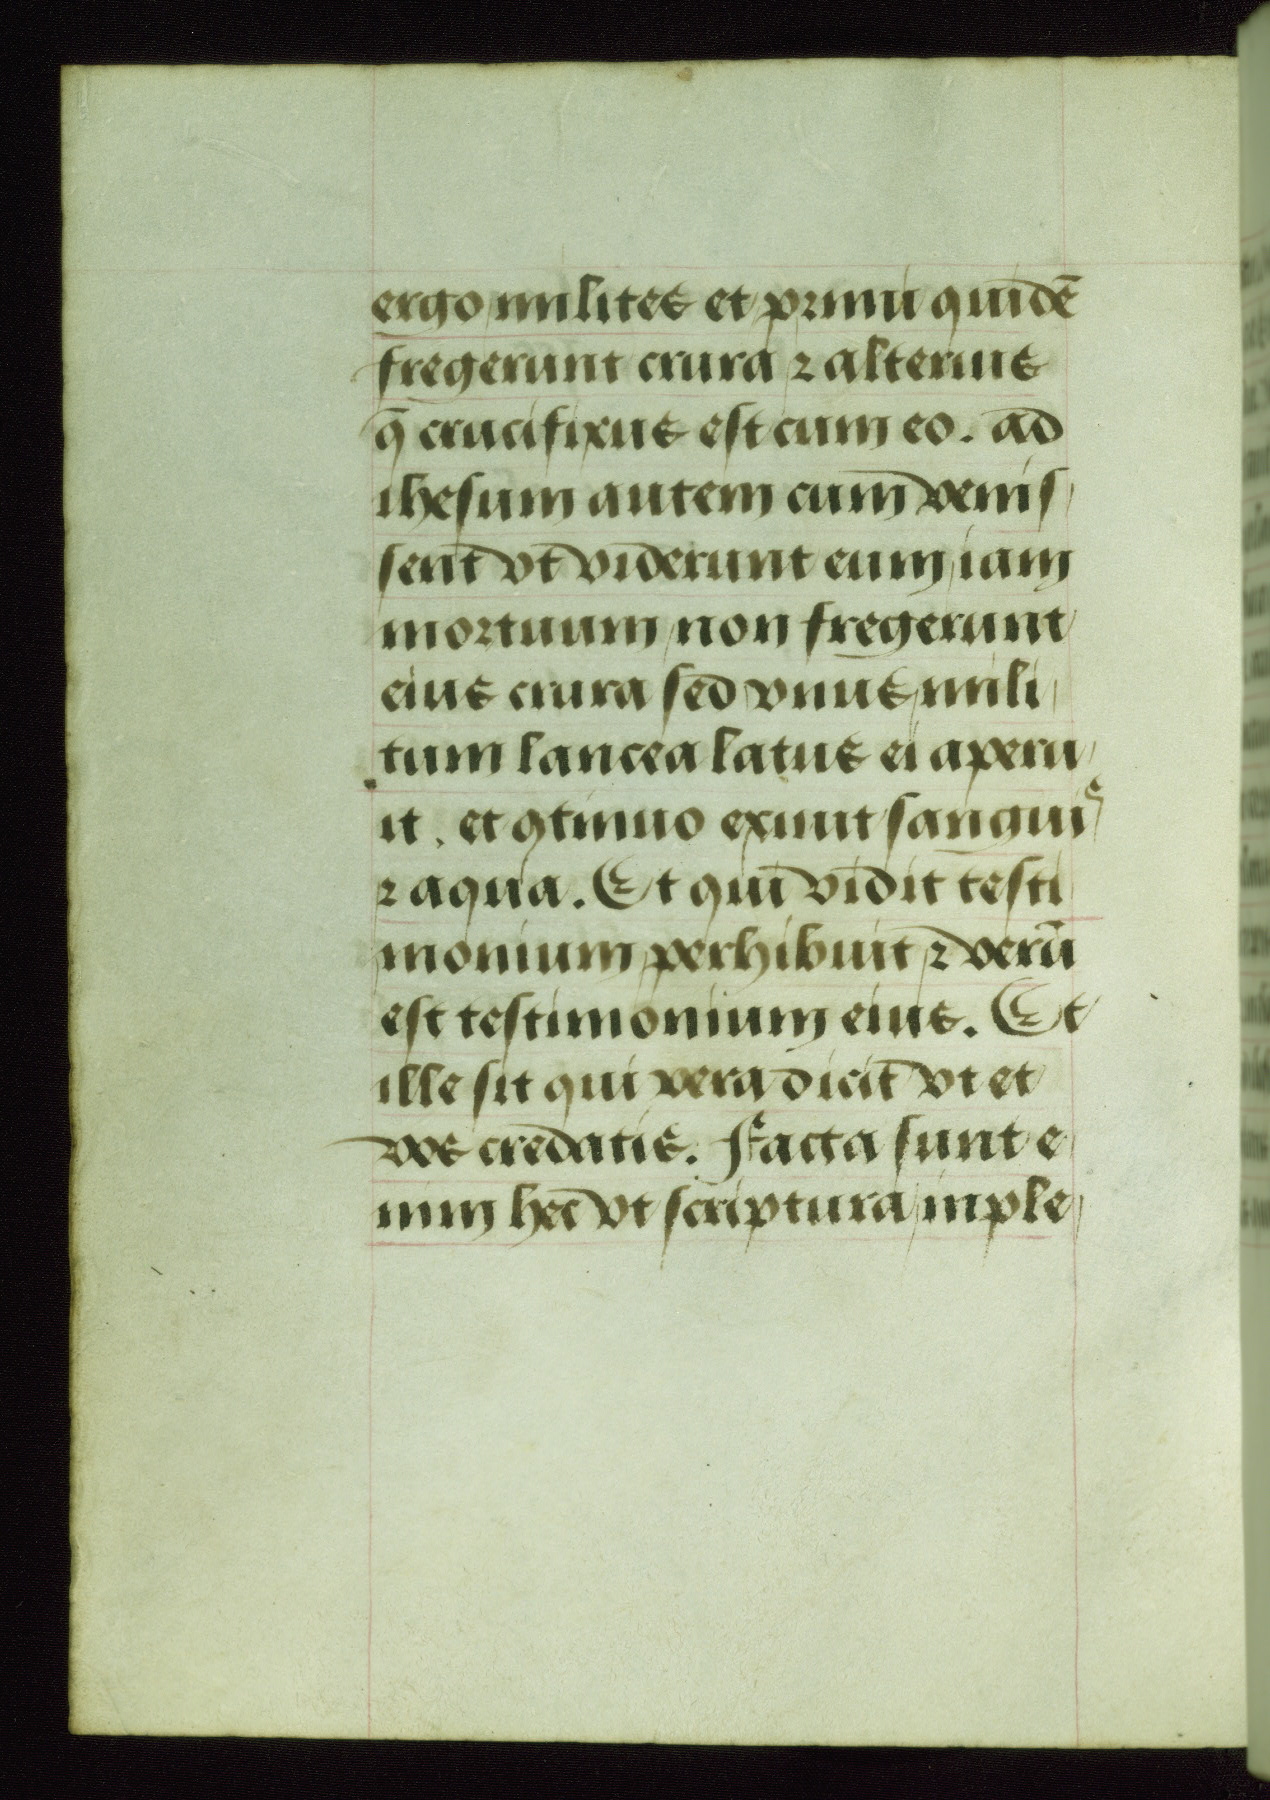 ergo milites et primi quidē
fregerunt crura ⁊ alterius
q̄ crucifixus est cum eo. ad
ihesum autem cum venis
sent vt viderunt eum iam
mortuum non fregerunt
eius crura sed vnus mili
tum lancea latus ei aperu
it. et ꝯtinuo exiuit sangui^s
⁊ aqua. Et qui vidit testi
monium perhibuit ⁊ verū
est testimonium eius. Et
ille sit qui vera dicit vt et
vos credatis. Facta sunt e
nim hec vt scriptura inple